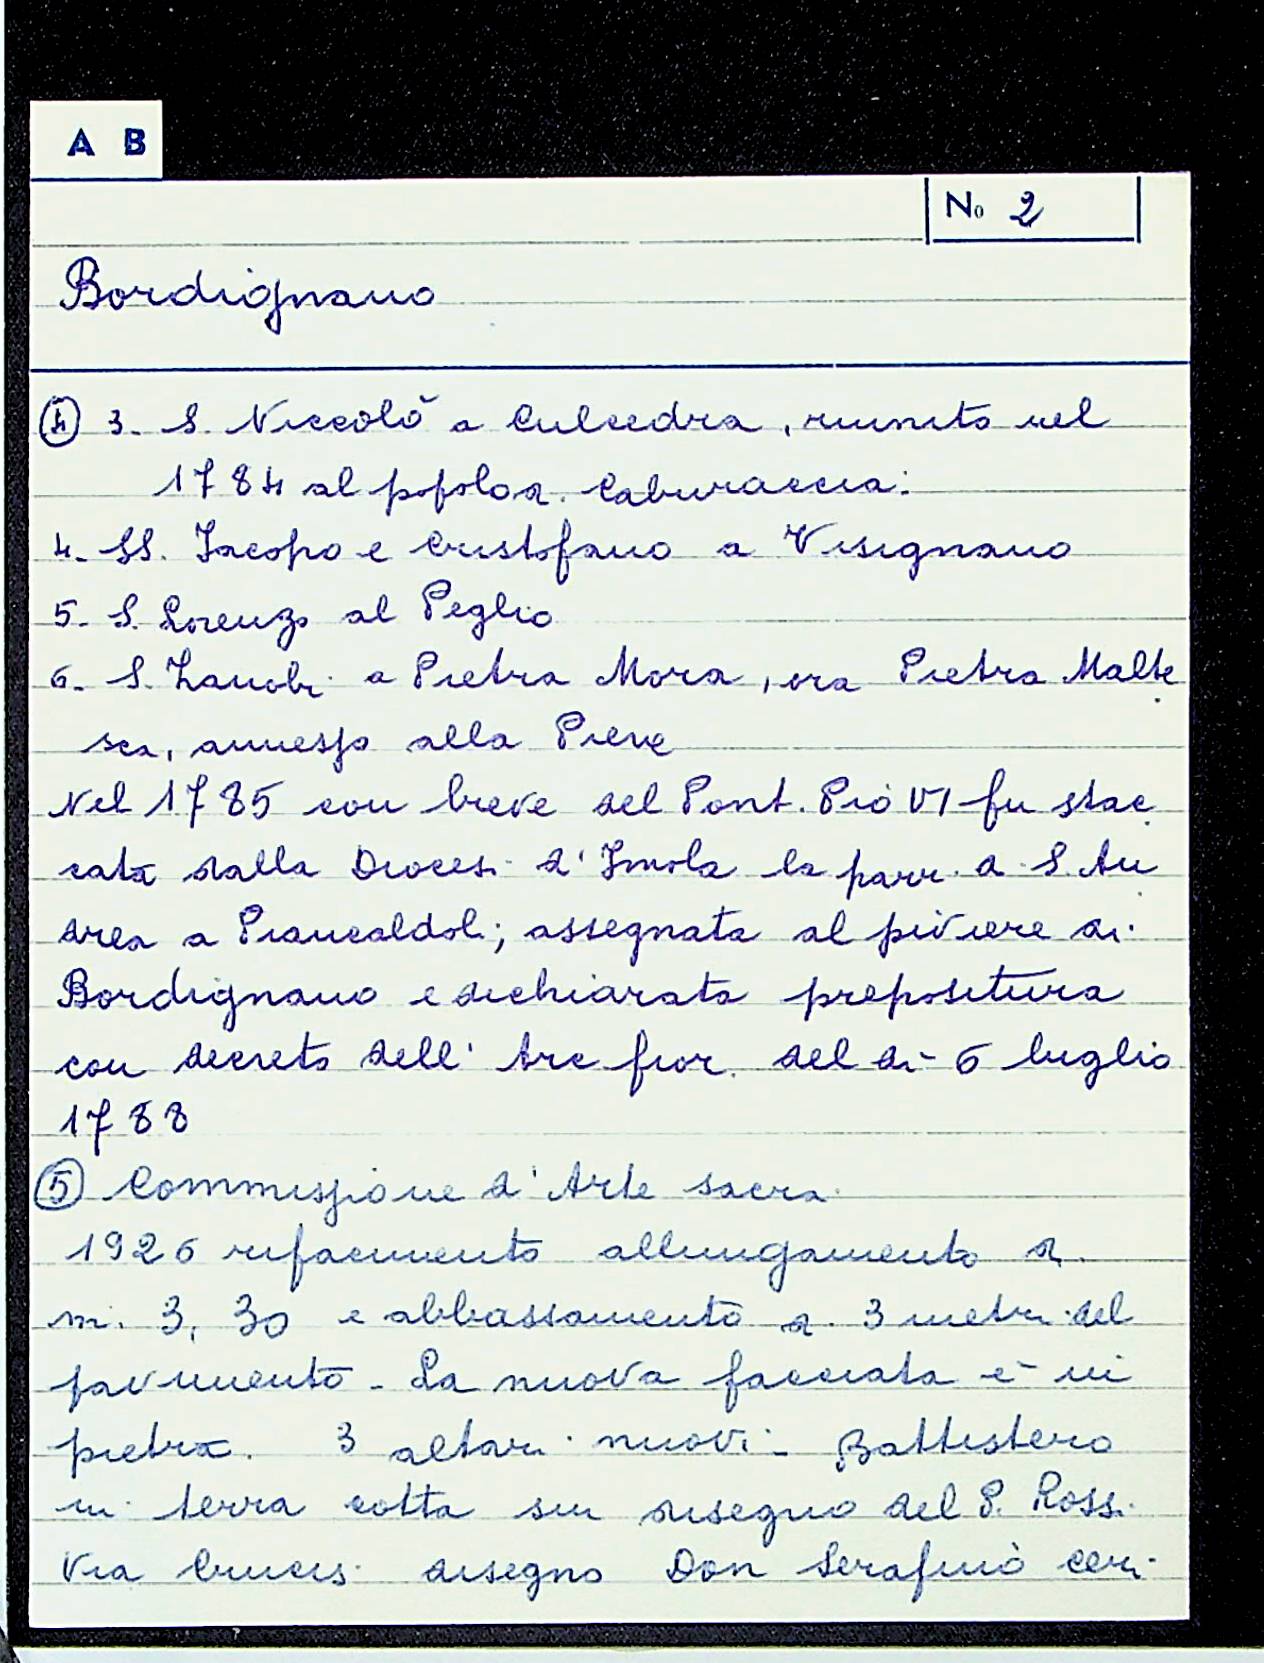 A B
No 2
Bordignano
④ 3. S. Niccolò a Culcedra, riunito nel
1784 al popolo di Caburaccia.
4. SS. Jacopo e Cristofano a Visignano
5. S. Lorenzo al Peglio
6. S. Zanobi a Pietra Mora, ora Pietra Malte
sca, annesso alla Pieve
Nel 1785 con breve del Pont. Pio VI fu stac
cata dalla Diocesi d'Imola la parr. di S. An
drea a Piancaldoli; assegnata al piviere di
Bordignano e dichiarata prepositura
con decreto dell'Arc fior. del dì 6 luglio
1788
⑤ Commissione d'Arte sacra.
1926 rifacimento allungamento di
m. 3,30 e abbassamento di 3 metri del
pavimento - La nuova facciata è in
pietra. 3 altari nuovi - Battistero
in terra cotta su disegno del P. Rossi
Via Crucis disegno Don Serafino